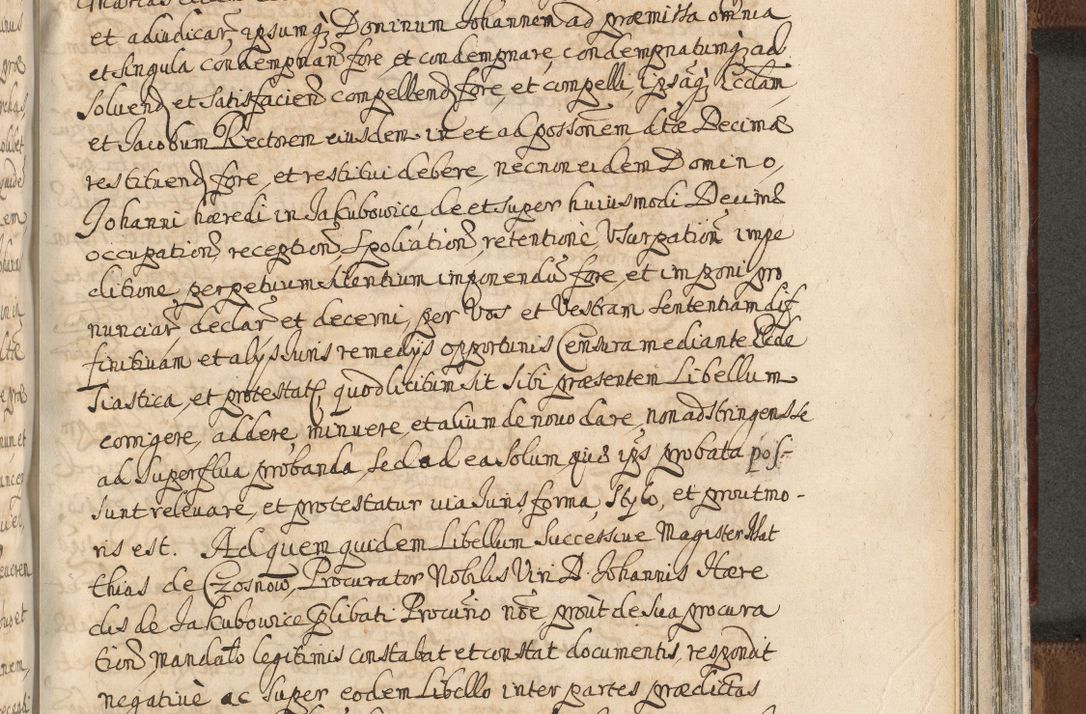 et adiudicar, ipsumq; Dominum Johannem ad præmissa omnia
et singula condempnan fore, et condempnare, condempnatumq; ad
soluend et satisfacien compellend fore, et compelli, Ipsaq; Ecclam
et Jacobum Rectorem eiusdem in et ad possonem dtæ Decimæ
restituend fore, et restitui debere, necnon eidem Domino,
Johanni hæredi in Jakubowice, de et super huiusmodi Decimæ
occupation, reception, spoliation, retentione, Usurpation impe
ditione, perpetuum silentium imponendu fore, et imponi pro
nunciar, declar, et decerni, per Vos et Vestram sententiam dif
finitiuam et alys Juris remedys opportunis Censura mediante Eccle
siastica, et protestat, quod licitum sit sibi præsentem Libellum
corrigere, addere, minuere, et alium de nouo dare, non adstringens se
ad superflua probanda, sed ad ea solum quæ ips probata pos-
sunt releuare, et protestatur uia Juris forma, stylo, et prout mo-
ris est. Ad quem quidem Libellum successiue Magister Mat
thias de Czosnow, Procurator Nobilis Viri D. Johannis Hære
dis de Jakubowice plibati Procurio noe prout de sua procura
tion, mandato legitimis constabat et constat documentis, respondit
negatiuè ac super eodem Libello inter partes prædictas